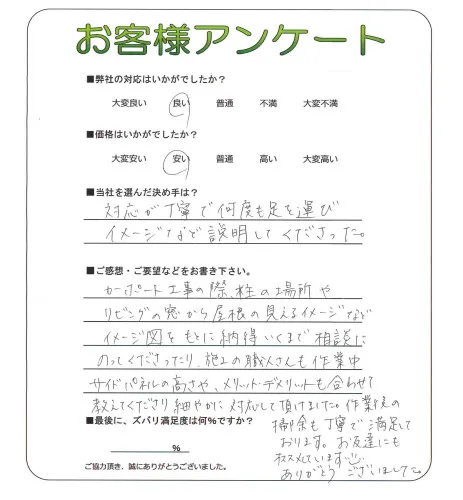 お客様アンケート
■弊社の対応はいかがでしたか？
大変良い 良い 普通 不満 大変不満
■価格はいかがでしたか？
大変安い 安い 普通 高い 大変高い
■当社を選んだ決め手は？
対応が丁寧で何度も足を運び
イメージなど説明してくださった。
■ご感想・ご要望などをお書き下さい。
カーポート工事の際、柱の場所や
リビングの窓から屋根の見えるイメージなど
イメージ図をもとに納得いくまで相談に
のってくださったり、施工の職人さんも作業中
サイドパネルの高さや、メリット・デメリットも合わせて
教えてくださり細やかに対応して頂けました。作業後の
掃除も丁寧で満足して
おります。お友達にも
ススメています
ありがとうございました。
■最後に、ズバリ満足度は何％ですか？
％
ご協力頂き、誠にありがとうございました。